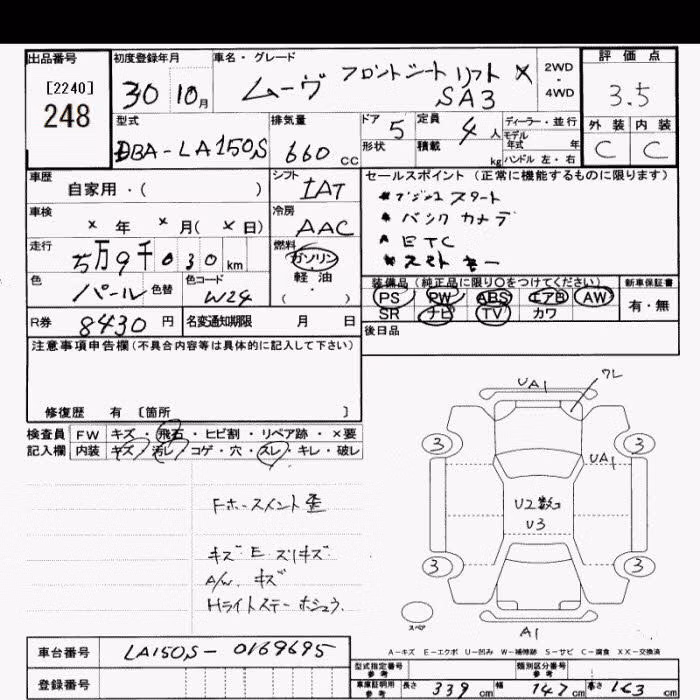 出品番号 初度登録年月 車名・グレード 評価点
[2240]
248
30 10月 ムーヴ フロントシートリフト X
SA3
2WD
・
4WD
3.5
型式 排気量 ドア 5 定員 4人 ディーラー・並行
モデル
年式 年
外装 内装
DBA-LA150S 660 CC 形状 積載 kg ハンドル 左・右 C C
車歴 シフト IAT セールスポイント (正常に機能するものに限ります)
自家用・( )
*プッシュスタート
*バックカメラ
*ETC
*スマトキー
車検 冷房 AAC
× 年 × 月( × 日)
走行 燃料 ガソリン
5万9千030km ・
軽油
( )
色 パール 色替 色コード W24
装備品 (純正品に限り○をつけてください) 新車保証書
PS PW ABS エアB AW 有・無
SR ナビ TV カワ
R券 8430円 名変通知期限 月 日
後日品
注意事項申告欄(不具合内容等は具体的に記入して下さい)
修復歴 有 〔箇所 〕
検査員 FW キズ・飛石・ヒビ割・リペア跡・×要
記入欄 内装 キズ・汚レ・コゲ・穴・スレ・キレ・破レ
Fホースメント歪
キズ E スリキズ
A/W キズ
Hライトステーホシュウ
UA1 ワレ
3 3
UA1
U2数コ
U3
3 3
スペア
A1
A-キズ E-エクボ U-凹み W-補修跡 S-サビ C-腐食 XX-交換済
車台番号 LA150S-0169695
登録番号
型式指定番号
参考
類別区分番号
参考
車庫証明用
参考
長さ 339cm 幅 147cm 高さ 163cm